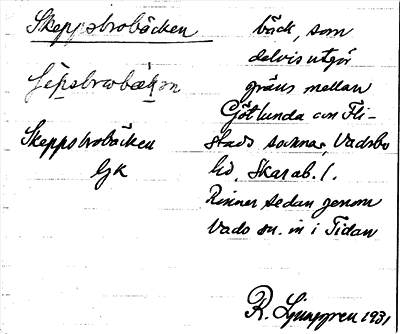 Skeppsbrobäcken
bäck, som
delvis utgör
gräns mellan
Götlunda och Fli-
Skeppsbrobäcken
stads socknar, Vadsbo
GK
hd, Skarab. l.
Rinner sedan genom
Vado sn. in i Tidan
R. Ljunggren 1931